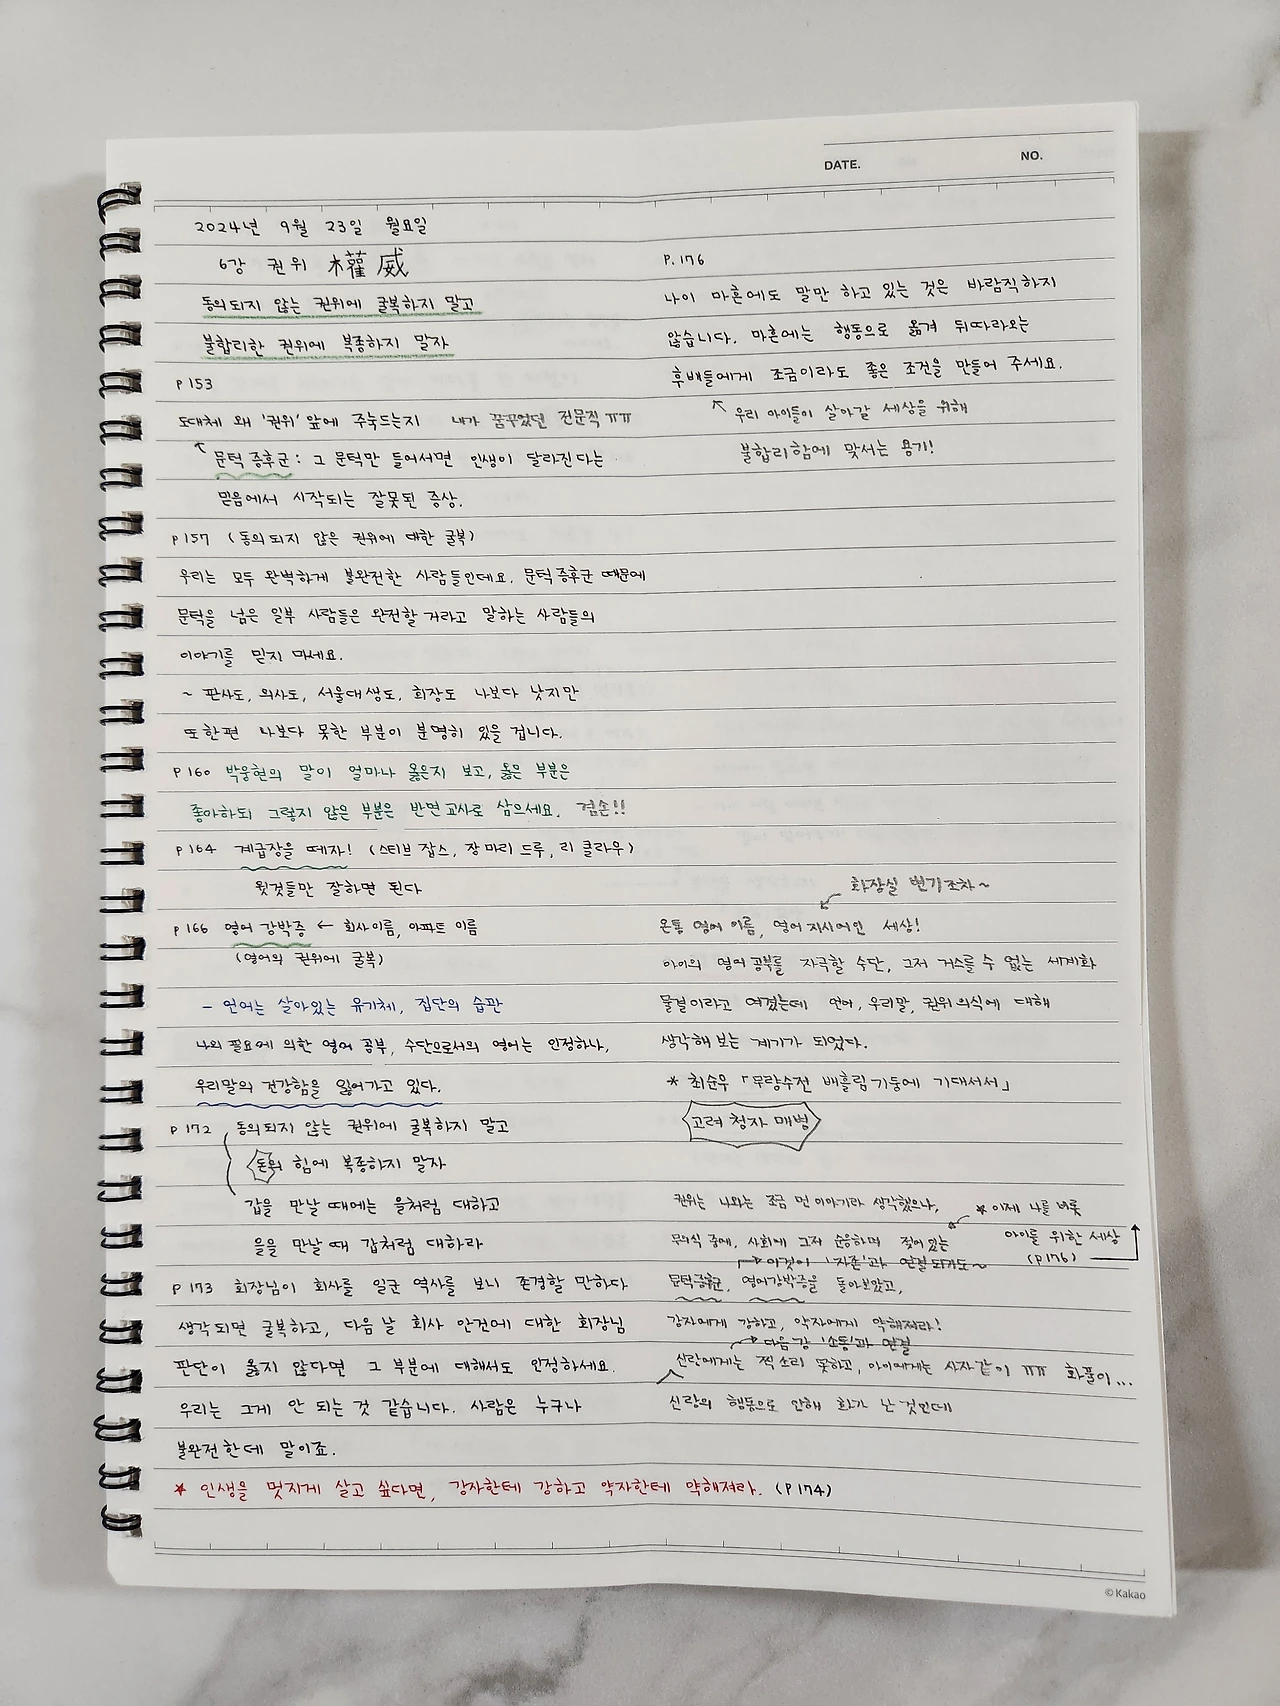 DATE.
NO.
2024년 9월 23일 월요일
6강 권위 權威
동의되지 않는 권위에 굴복하지 말고
불합리한 권위에 복종하지 말자
P 153
도대체 왜 '권위' 앞에 주눅드는지 내가 꿈꾸었던 전문직 ㅠㅠ
문턱 증후군 : 그 문턱만 들어서면 인생이 달라진다는
믿음에서 시작되는 잘못된 증상.
P 157 (동의되지 않은 권위에 대한 굴복)
우리는 모두 완벽하게 불완전한 사람들인데요. 문턱 증후군 때문에
문턱을 넘은 일부 사람들은 완전할 거라고 말하는 사람들의
이야기를 믿지 마세요.
~ 판사도, 의사도, 서울대생도, 회장도 나보다 낫지만
또 한편 나보다 못한 부분이 분명히 있을 겁니다.
P 160 박웅현의 말이 얼마나 옳은지 보고, 옳은 부분은
좋아하되 그렇지 않은 부분은 반면교사로 삼으세요. 겸손!!
P 164 계급장을 떼자! (스티브 잡스, 장 마리 드루, 리 클라우)
윗것들만 잘하면 된다
P 166 영어 강박증 ← 회사이름, 아파트 이름
(영어의 권위에 굴복)
- 언어는 살아있는 유기체, 집단의 습관
나의 필요에 의한 영어 공부, 수단으로서의 영어는 인정하나,
우리말의 건강함을 잃어가고 있다.
P 172 동의되지 않는 권위에 굴복하지 말고
돈의 힘에 복종하지 말자
갑을 만날 때에는 을처럼 대하고
을을 만날 때 갑처럼 대하라
P 173 회장님이 회사를 일군 역사를 보니 존경할 만하다
생각되면 굴복하고, 다음 날 회사 안건에 대한 회장님
판단이 옳지 않다면 그 부분에 대해서도 인정하세요.
우리는 그게 안 되는 것 같습니다. 사람은 누구나
불완전한데 말이죠.
* 인생을 멋지게 살고 싶다면, 강자한테 강하고 약자한테 약해져라. (P 174)
P. 176
나이 마흔에도 말만 하고 있는 것은 바람직하지
않습니다. 마흔에는 행동으로 옮겨 뒤따라오는
후배들에게 조금이라도 좋은 조건을 만들어 주세요.
우리 아이들이 살아갈 세상을 위해
불합리함에 맞서는 용기!
화장실 변기조차~
온통 영어 이름, 영어 지시어인 세상!
아이의 영어 공부를 자극할 수단, 그저 거스를 수 없는 세계화
물결이라고 여겼는데 언어, 우리말, 권위 의식에 대해
생각해 보는 계기가 되었다.
* 최순우 「무량수전 배흘림기둥에 기대서서」
고려 청자 매병
권위는 나와는 조금 먼 이야기라 생각했으나,
* 이제 나를 비롯
아이를 위한 세상
(P176)
무의식 중에, 사회에 그저 순응하며 젖어 있는
이것이 '자존'과 연결되기도~
문턱증후군, 영어강박증을 돌아보았고,
강자에게 강하고, 약자에게 약해져라!
다음 강 '소통'과 연결
신랑에게는 찍소리 못하고, 아이에게는 사자같이 ㅠㅠ 화풀이...
신랑의 행동으로 인해 화가 난 것인데
©Kakao